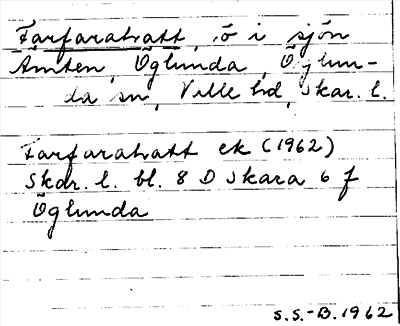 Farfarahatt, ö i sjön
Ämten, Öglunda, Öglun-
da sn, Valle hd, Skar. l.
Farfarahatt ek (1962)
Skar. l. bl. 8 D Skara 6 f
Öglunda
S.S.-B. 1962